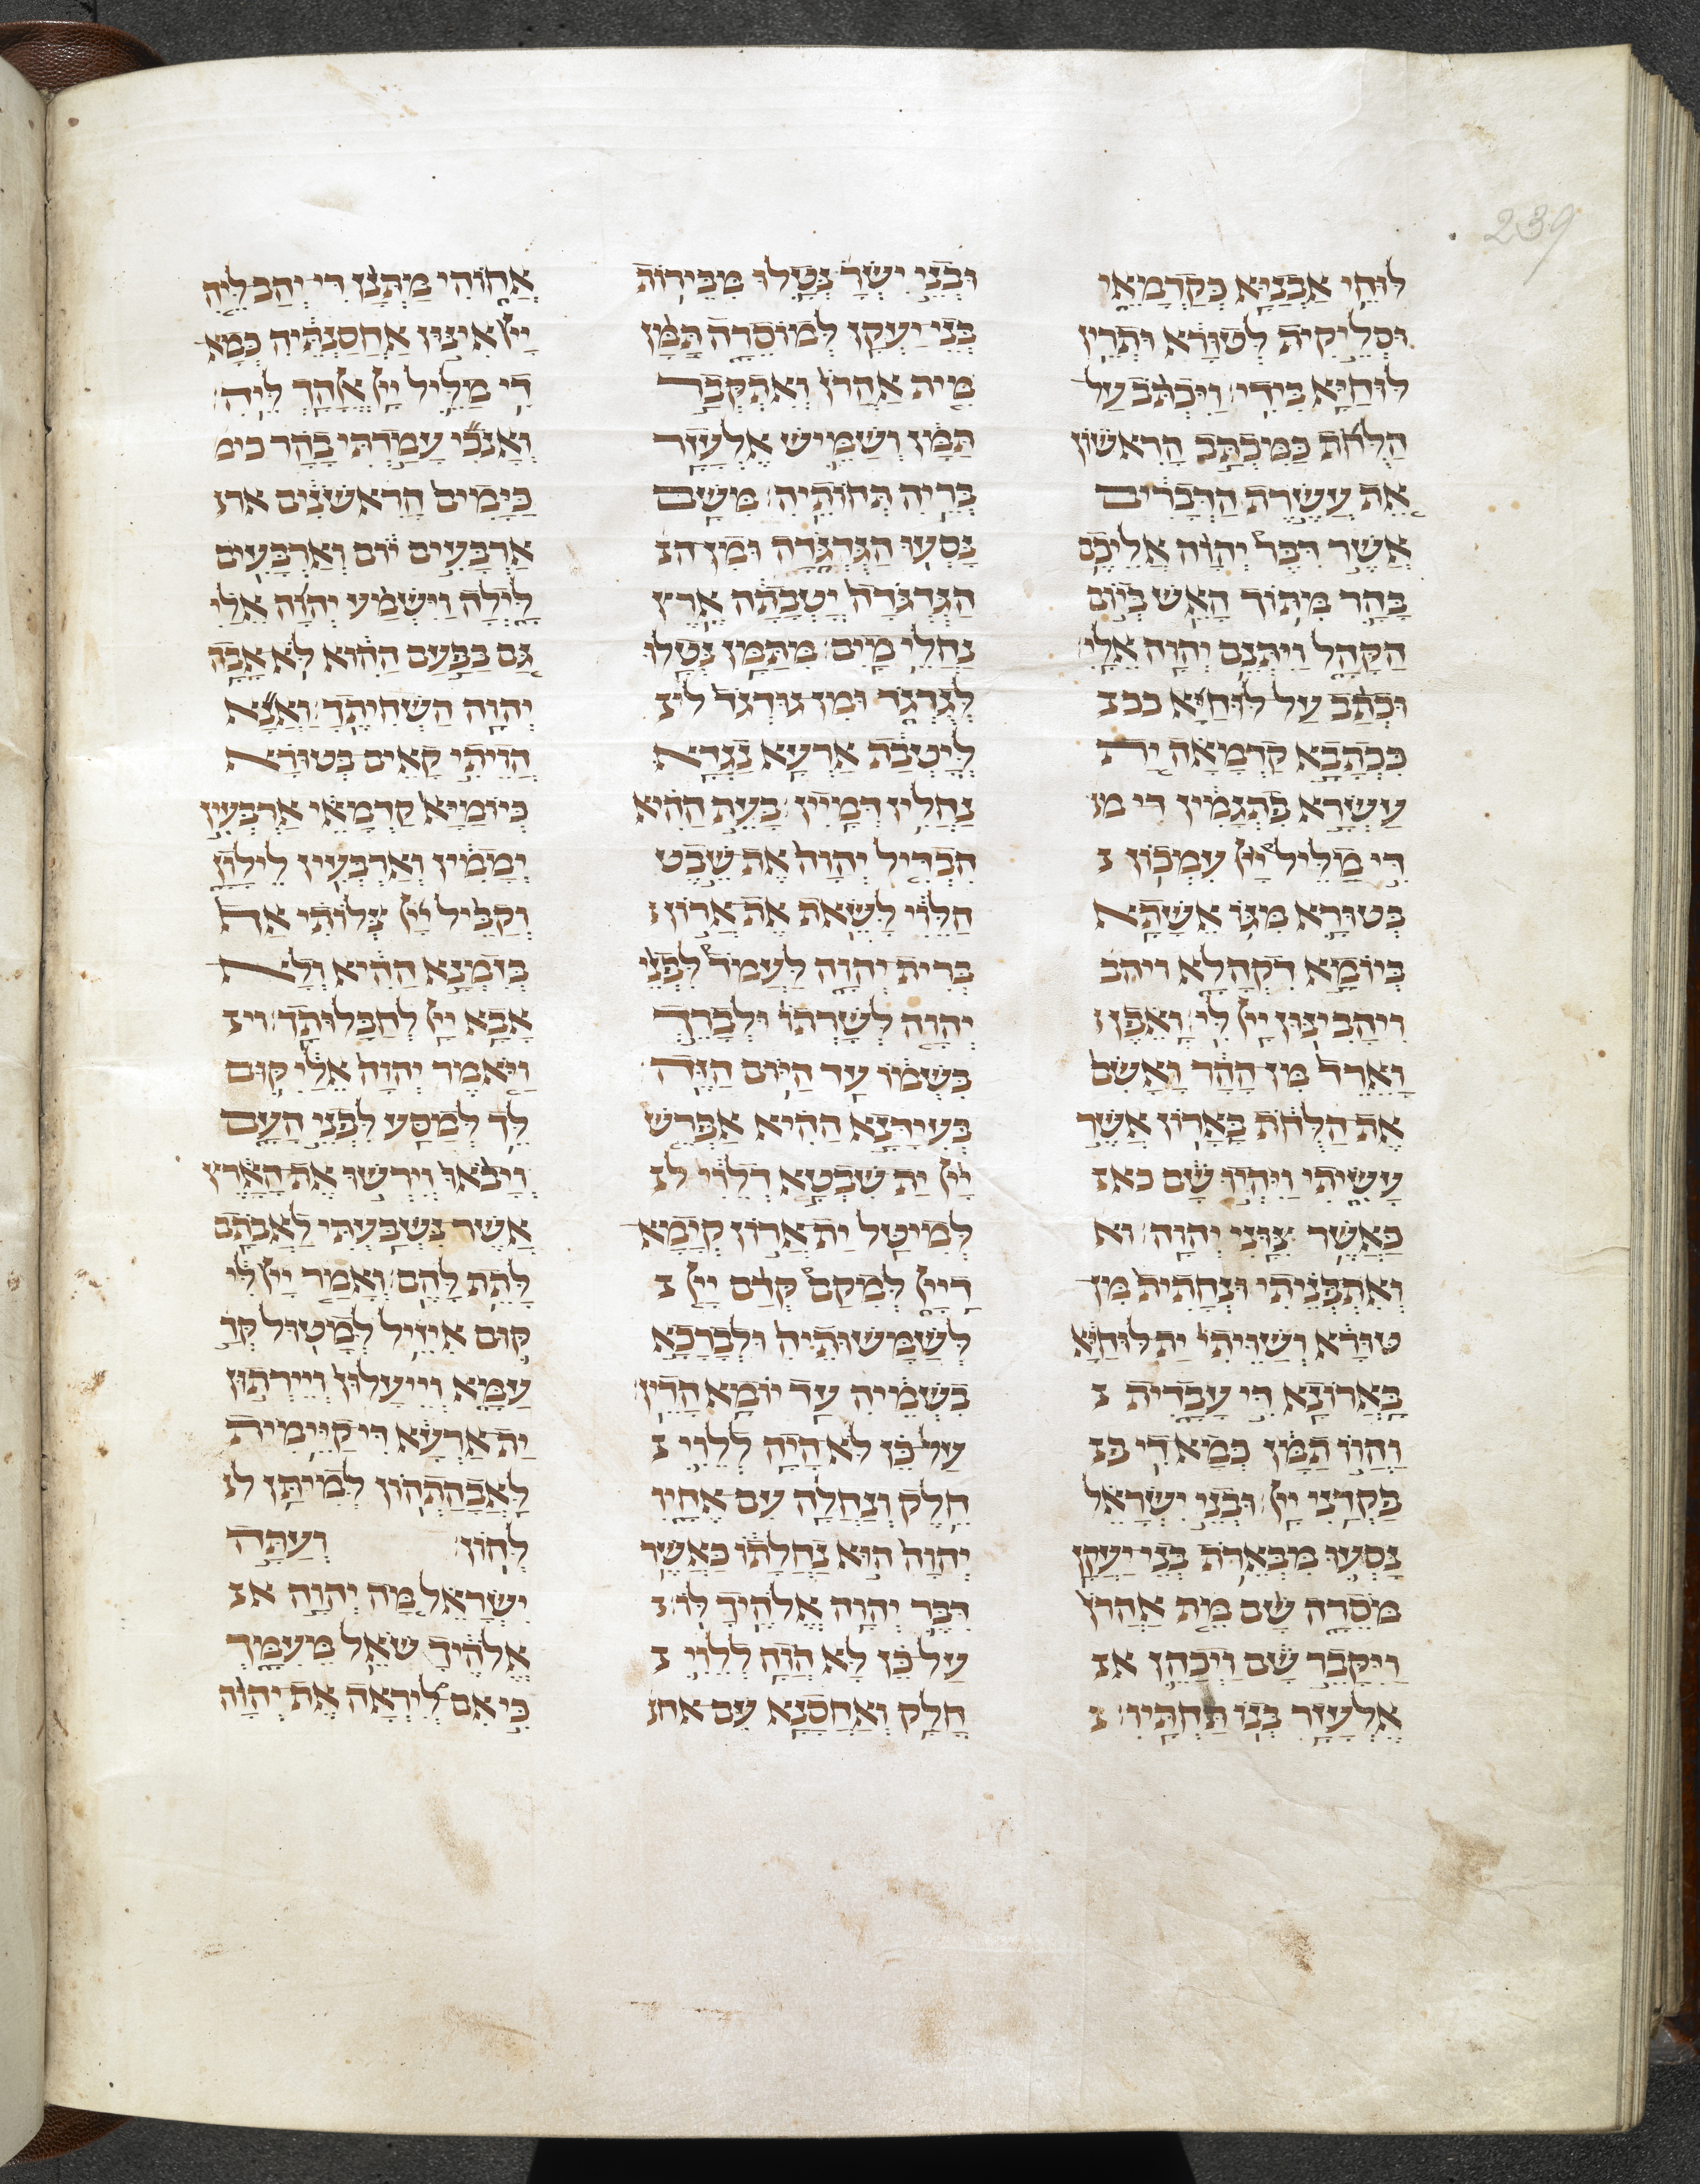 239
לוחי אבניא כקדמאי
וסליקית לטורא ותרין
לוחיא בידי ויכתב על
הלחת כמכתב הראשון
את עשרת הדברים
אשר דבר יהוה אליכם
בהר מתוך האש ביום
הקהל ויתנם יהוה אלי
וכתב על לוחיא ככ
ככתבא קדמאה ית
עשרא פתגמין די מ
די מליל ייי עמכון
בטורא מגו אשתא
ביומא דקהלא ויהב
ויהבינון ייי לי ואפן
וארד מן ההר ואשם
את הלחת בארון אשר
עשיתי ויהיו שם כא
כאשר צוני יהוה וא
ואתפניתי ונחתית מן
טורא ושויתי ית לוחיא
בארונא די עבדית
והוו תמן כמא די פ
פקדני ייי ובני ישראל
נסעו מבארת בני יעקן
מסרה שם מת אהרן
ויקבר שם ויכהן א
אלעזר בנו תחתיו
ובני ישר נטלו מבירות
בני יעקן למוסרה תמן
מית אהרן ואתקבר
תמן ושמיש אלעזר
בריה תחותיה משם
נסעו הגדגדה ומן ה
הגדגדה יטבתה ארץ
נחלי מים מתמן נטלו
לגדגד ומן גודגד ל
ליטבת ארעא נגדא
נחלין דמיין בעת ההיא
הבדיל יהוה את שבט
הלוי לשאת את ארון
ברית יהוה לעמד לפני
יהוה לשרתו ולברך
בשמו עד היום הזה
בעידנא ההיא אפריש
ייי ית שבטא דלוי ל
למיטל ית ארון קימא
דייי למקם קדם ייי
לשמשותיה ולברכא
בשמיה עד יומא הדין
על כן לא היה ללוי
חלק ונחלה עם אחיו
יהוה הוא נחלתו כאשר
דבר יהוה אלהיך לו
על כן לא הוה ללוי
חלק ואחסנא עם אח
אחוהי מתנן די יהב ליה
ייי אינון אחסנתיה כמא
די מליל ייי אלהך ליה
ואנכי עמדתי בהר כימ
כימים הראשנים אר
ארבעים יום וארבעים
לילה וישמע יהוה אלי
גם בפעם ההוא לא אבה
יהוה השחיתך ואנא
הויתי קאים בטורא
כיומיא קדמאי ארבעין
יממין וארבעין לילון
וקביל ייי צלותי אף
בזמנא ההיא ולא
אבא ייי לחבלותך וי
ויאמר יהוה אלי קום
לך למסע לפני העם
ויבאו וירשו את הארץ
אשר נשבעתי לאבתם
לתת להם ואמר ייי לי
קום איזיל למטול קד
עמא וייעלון ויירתון
ית ארעא די קיימית
לאבהתהון למיתן ל
להון ועתה
ישראל מה יהוה א
אלהיך שאל מעמך
כי אם ליראה את יהוה